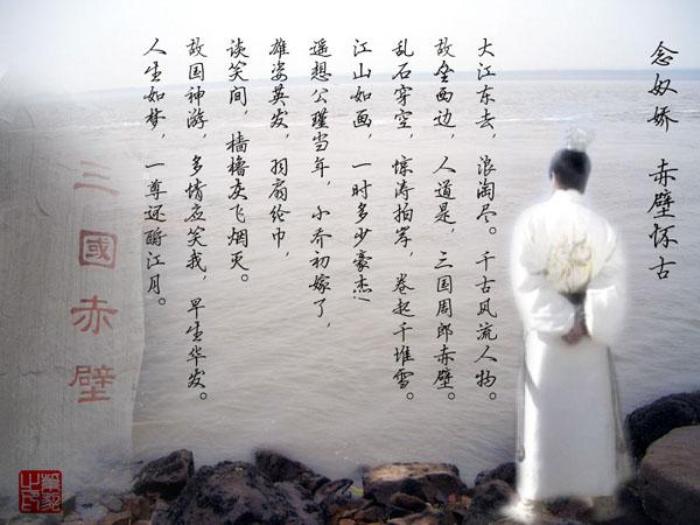 念奴娇 赤壁怀古
大江东去，浪淘尽。千古风流人物。
故垒西边，人道是，三国周郎赤壁。
乱石穿空，惊涛拍岸，卷起千堆雪。
江山如画，一时多少豪杰!
遥想公瑾当年，小乔初嫁了，
雄姿英发，羽扇纶巾，
谈笑间，樯橹灰飞烟灭。
故国神游，多情应笑我，早生华发。
人生如梦，一尊还酹江月。
三國赤壁